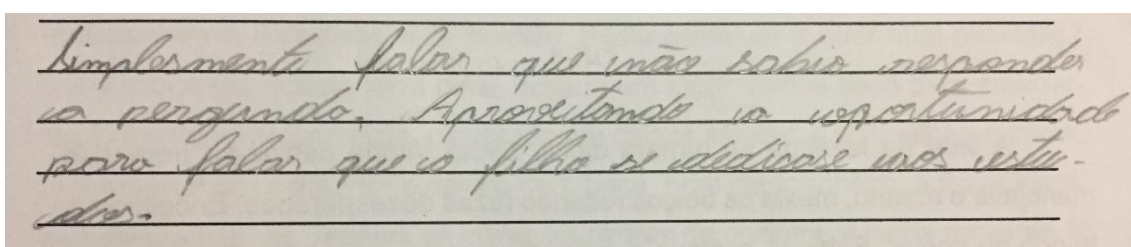 Simplesmente falar que não sabia responder
a pergunda. Aproveitando a oportunidade
para falar que o filho se dedicase nos estu-
dos.